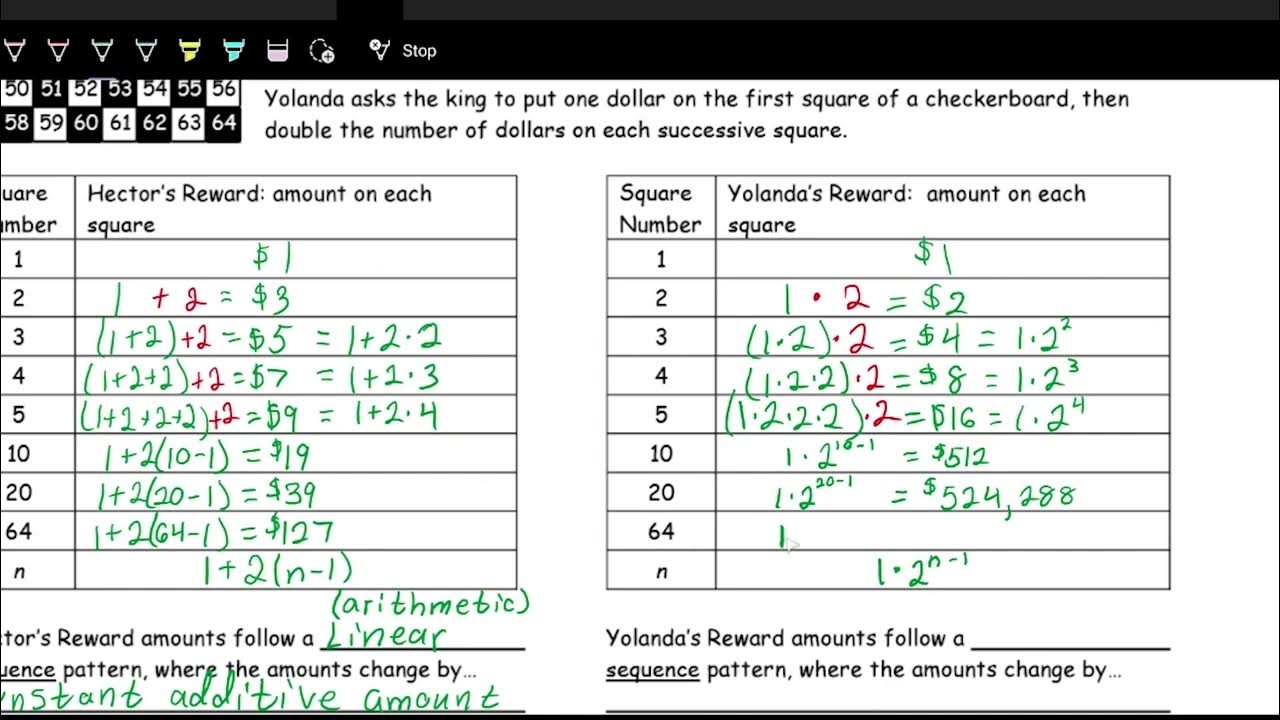 Stop
50 51 52 53 54 55 56
58 59 60 61 62 63 64
Yolanda asks the king to put one dollar on the first square of a checkerboard, then
double the number of dollars on each successive square.
uare Hector's Reward: amount on each
umber square
1 $1
2 1 + 2 = $3
3 (1+2)+2 = $5 = 1+2·2
4 (1+2+2)+2 = $7 = 1+2·3
5 (1+2+2+2)+2 = $9 = 1+2·4
10 1+2(10-1) = $19
20 1+2(20-1) = $39
64 1+2(64-1) = $127
n 1+2(n-1)
(arithmetic)
tor's Reward amounts follow a Linear
uence pattern, where the amounts change by...
nstant additive amount
Square Yolanda's Reward: amount on each
Number square
1 $1
2 1 · 2 = $2
3 (1·2)·2 = $4 = 1·2²
4 (1·2·2)·2 = $8 = 1·2³
5 (1·2·2·2)·2 = $16 = 1·2⁴
10 1·2¹⁰⁻¹ = $512
20 1·2²⁰⁻¹ = $524,288
64 1
n 1·2ⁿ⁻¹
Yolanda's Reward amounts follow a
sequence pattern, where the amounts change by...